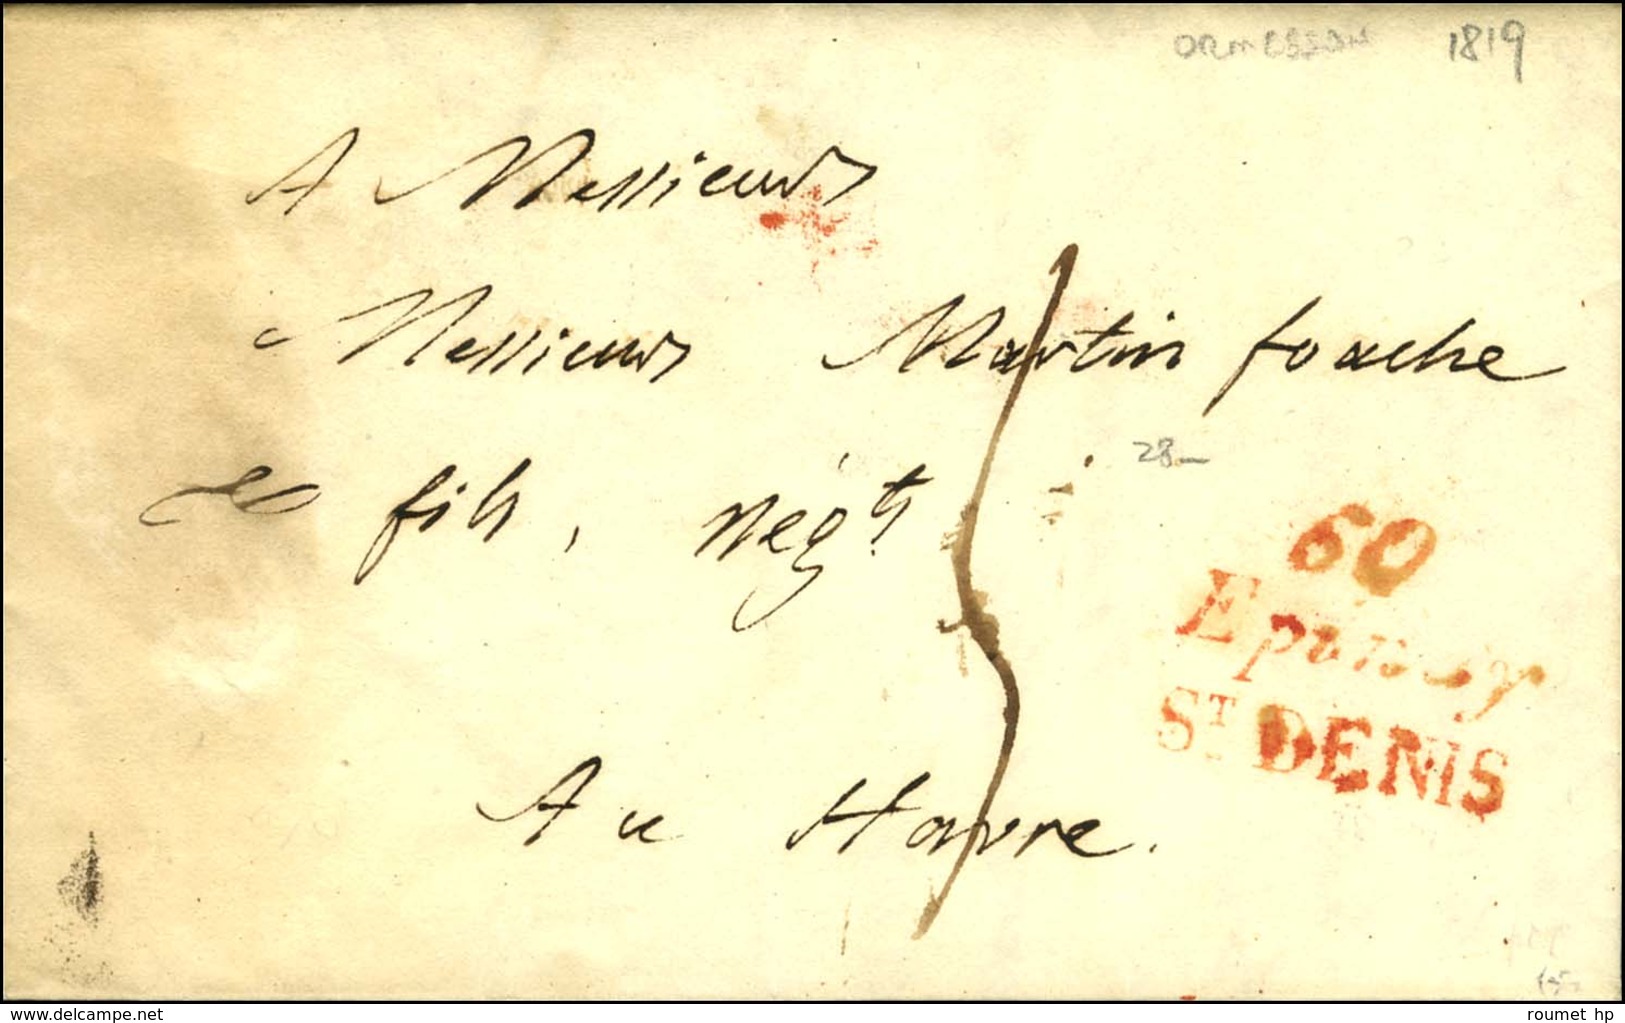 ORMESSON 1819
A Messieurs
Messieurs Martin foache
& fils, négts
28-
60
Epinay
ST DENIS
Au Havre.
www.delcampe.net
roumet hp